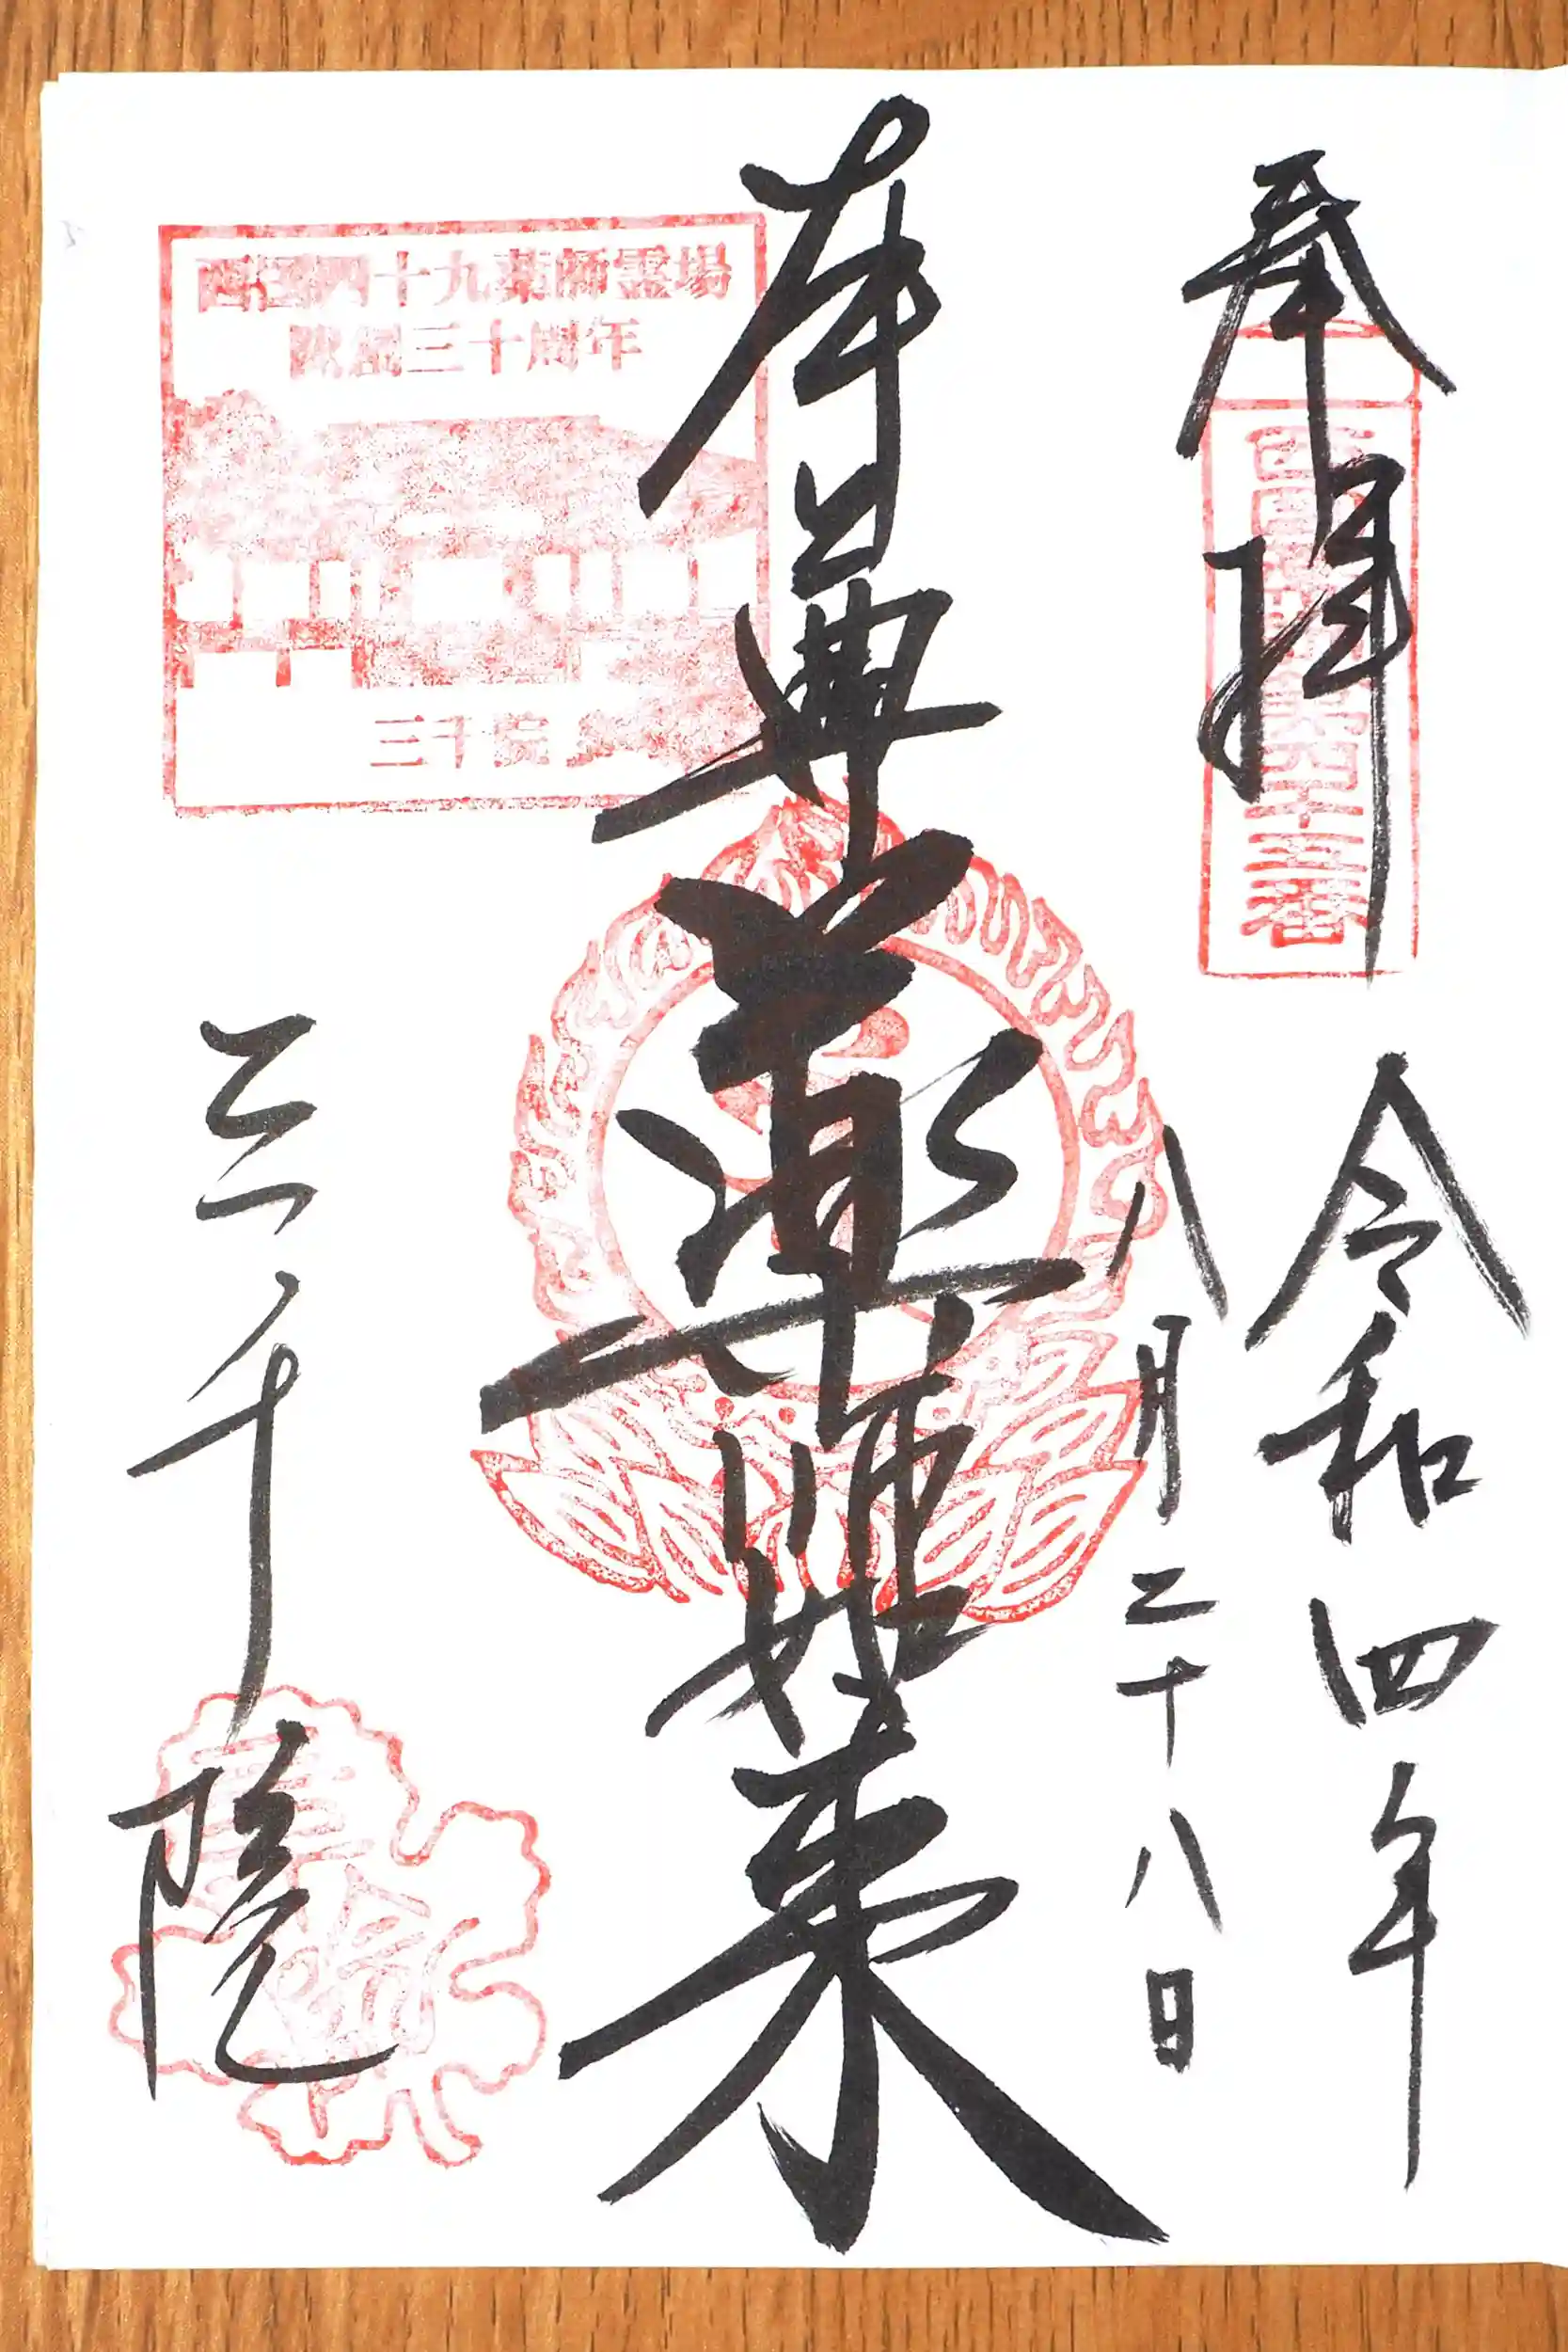 奉拝
西国薬師第四十五番
令和四年
八月二十八日
本尊薬師如来
西国四十九薬師霊場
開創三十周年
三千院
三千院